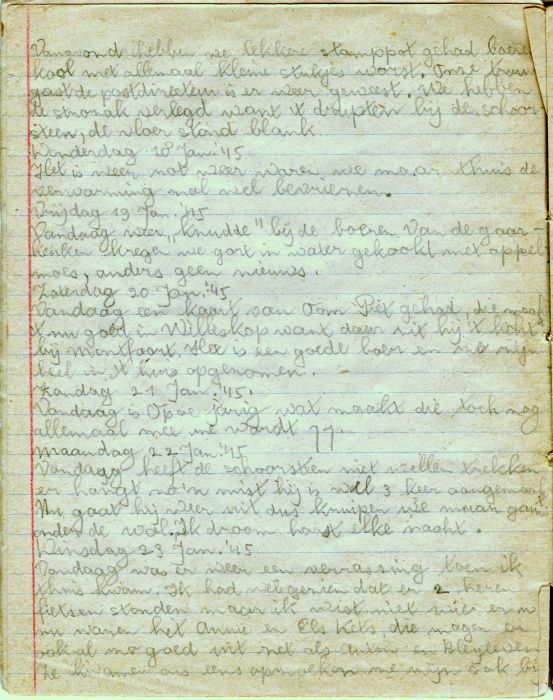 Vanavond hebben we lekkere stamppot gehad boere
kool met allemaal kleine stukjes worst. Onze
gast de postdirecteur is er weer geweest. We hebben
de strozak verlegd want 't drupte bij de schoor
steen, de vloer stond blank
Donderdag 18 Jan. '45
Het is weer rot weer waren we maar thuis de
verwarming zal wel bevriezen.
Vrijdag 19 Jan. '45
Vandaag weer "knudde" bij de boeren. Van de gaar-
keuken kregen we gort in water gekookt met appel
moes, anders geen nieuws.
Zaterdag 20 Jan. '45
Vandaag een kaart van Oom Piet gehad, die maak
't nu goed in Willeskop want daar zit hij 't
bij Montfoort. Het is een goede boer en ze zijn
heel in 't huis opgenomen.
Zondag 21 Jan. '45.
Vandaag is Opoe jarig wat maakt die toch nog
allemaal mee ze wordt 77.
Maandag 22 Jan. '45
Vandaag heeft de schoorsteen niet willen trekken
er hangt zo'n mist hij is wel 3 keer aangemaakt
Nu gaat hij weer uit dus kruipen we maar
onder de wol. Ik droom haast elke nacht.
Dinsdag 23 Jan. '45
Vandaag was er weer een verrassing toen ik
thuis kwam. Ik had wel gezien dat er 2 heren
fietsen stonden maar ik wist niet wier er
nu waren het Annie en Els Kets, die mogen er
ook al zo goed uit net als Anton en Bleyleven
Ze kwamen ons eens opzoeken ze zijn ook bij